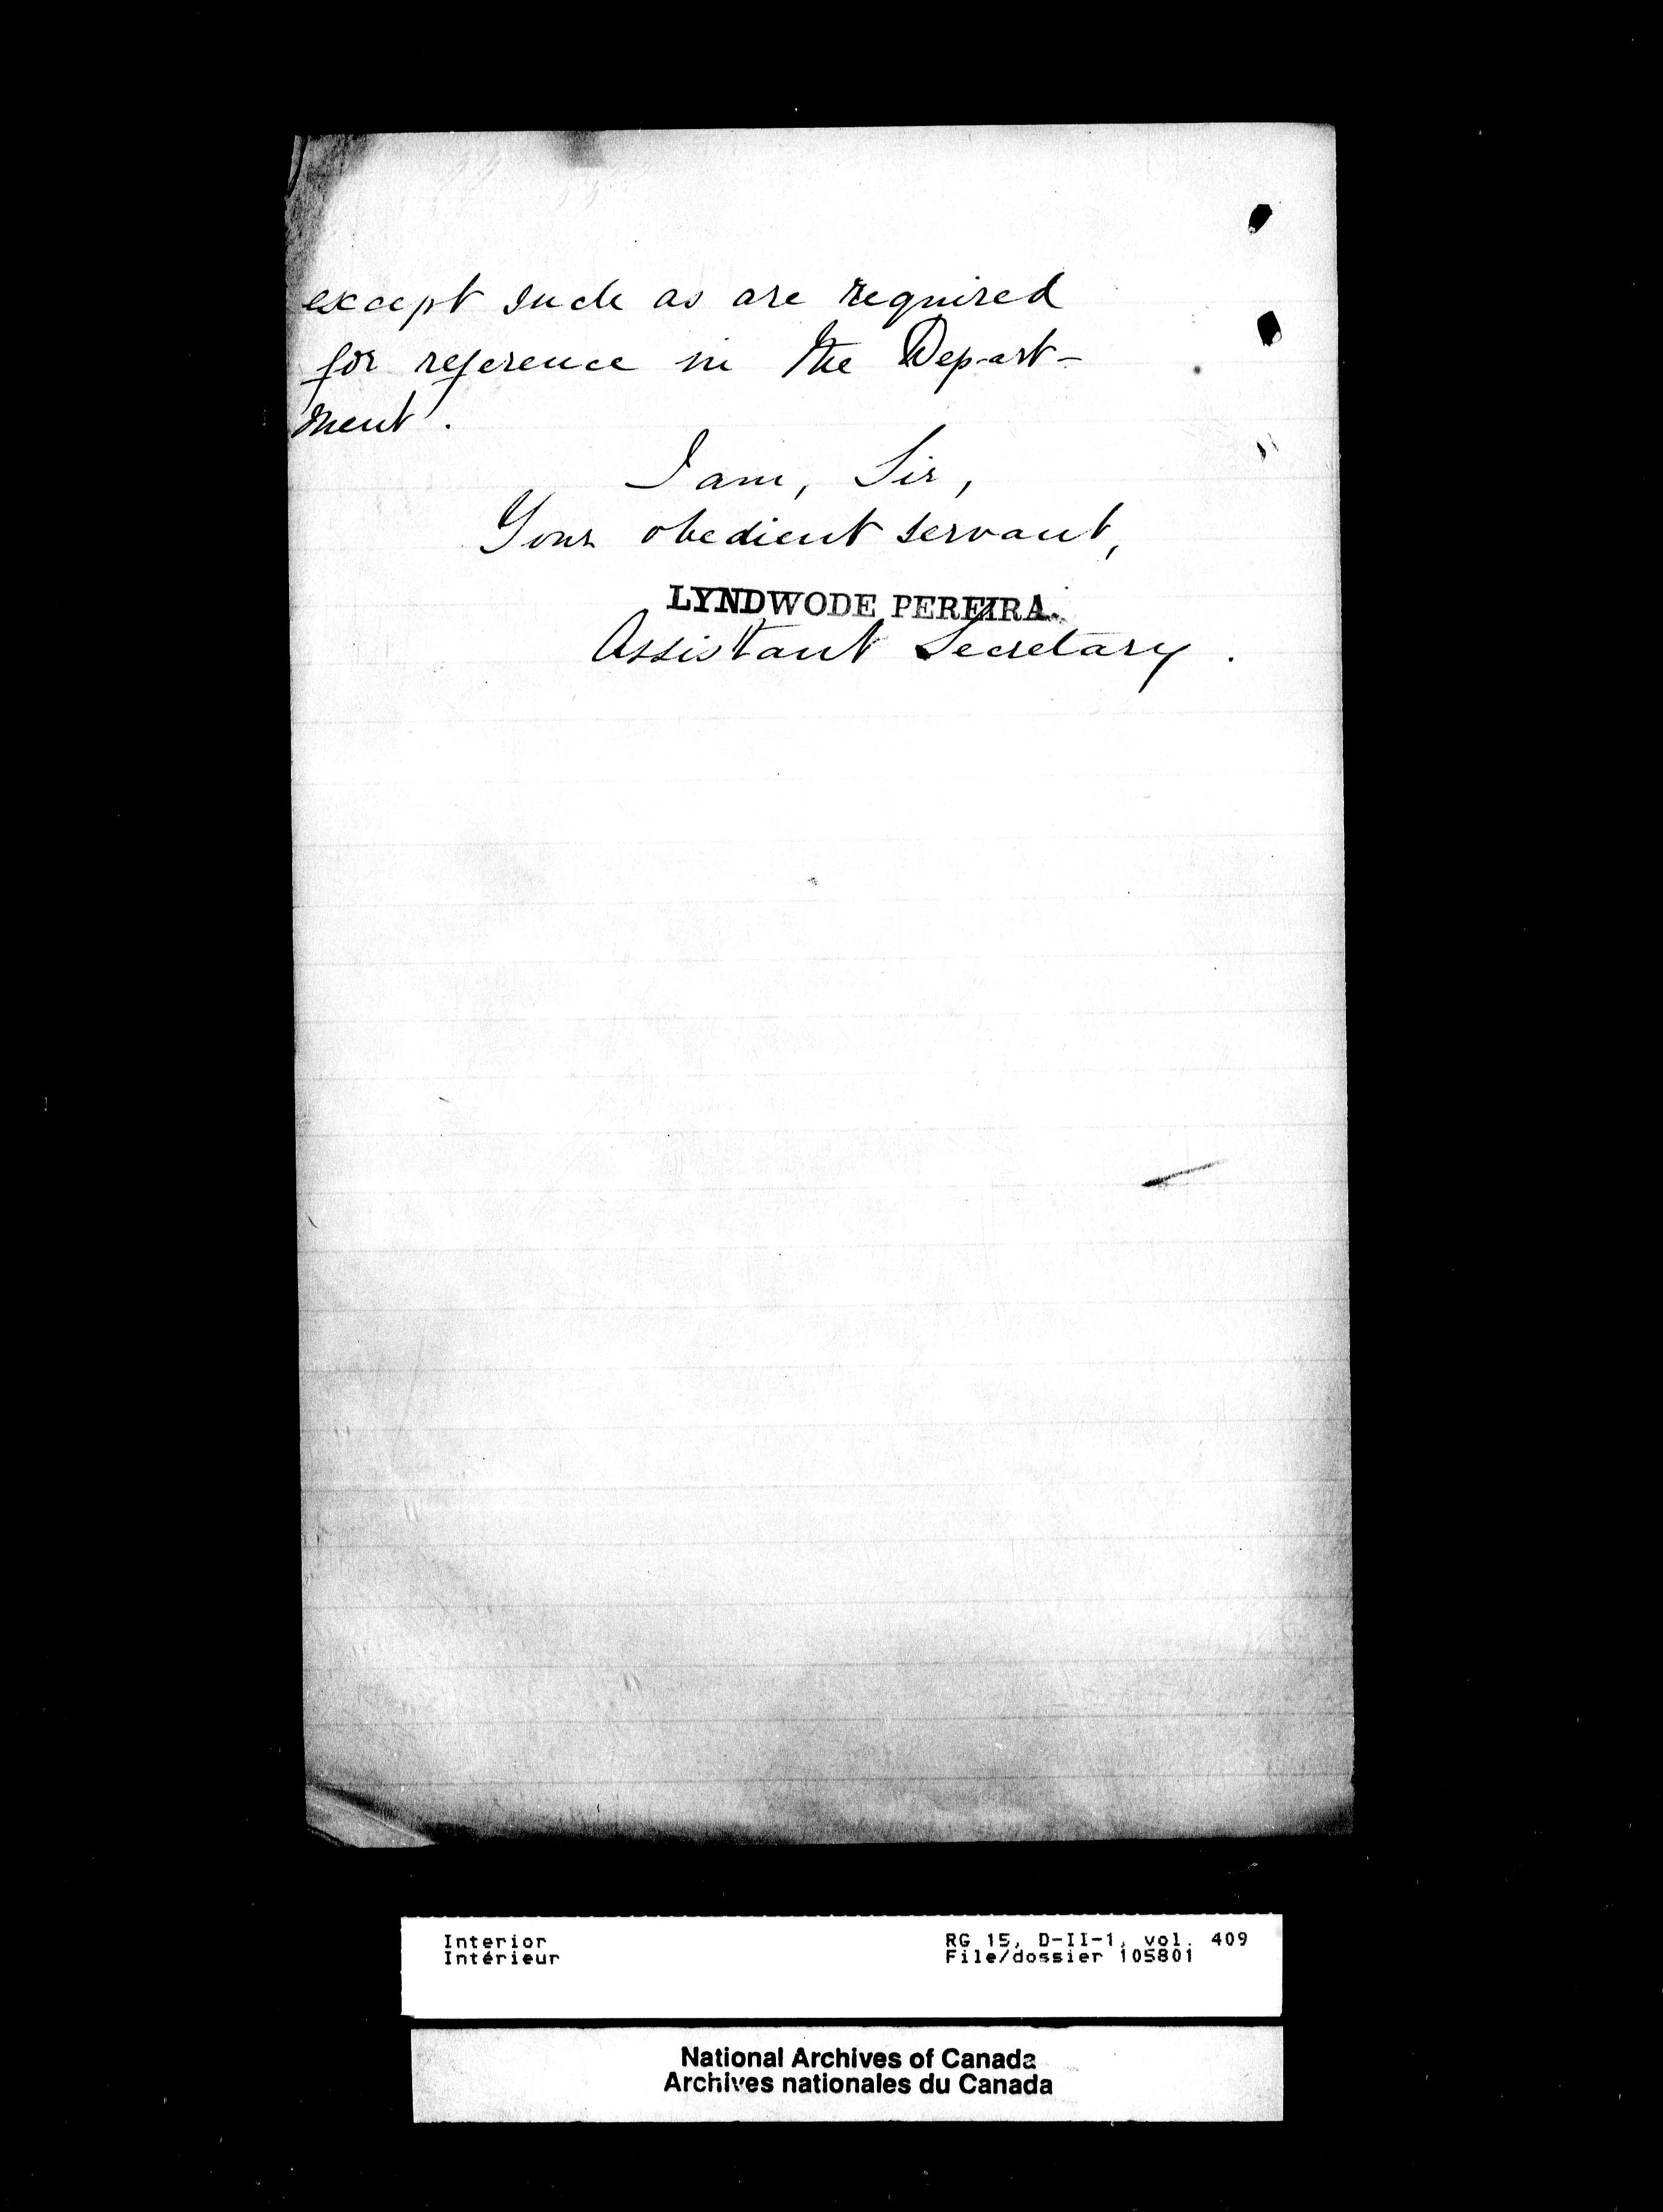 except such as are required
for reference in the Depart-
ment.
I am, Sir,
Your obedient servant,
LYNDWODE PEREIRA.
Assistant Secretary.
Interior
Intérieur
RG 15, D-II-1, vol. 409
File/dossier 105801
National Archives of Canada
Archives nationales du Canada